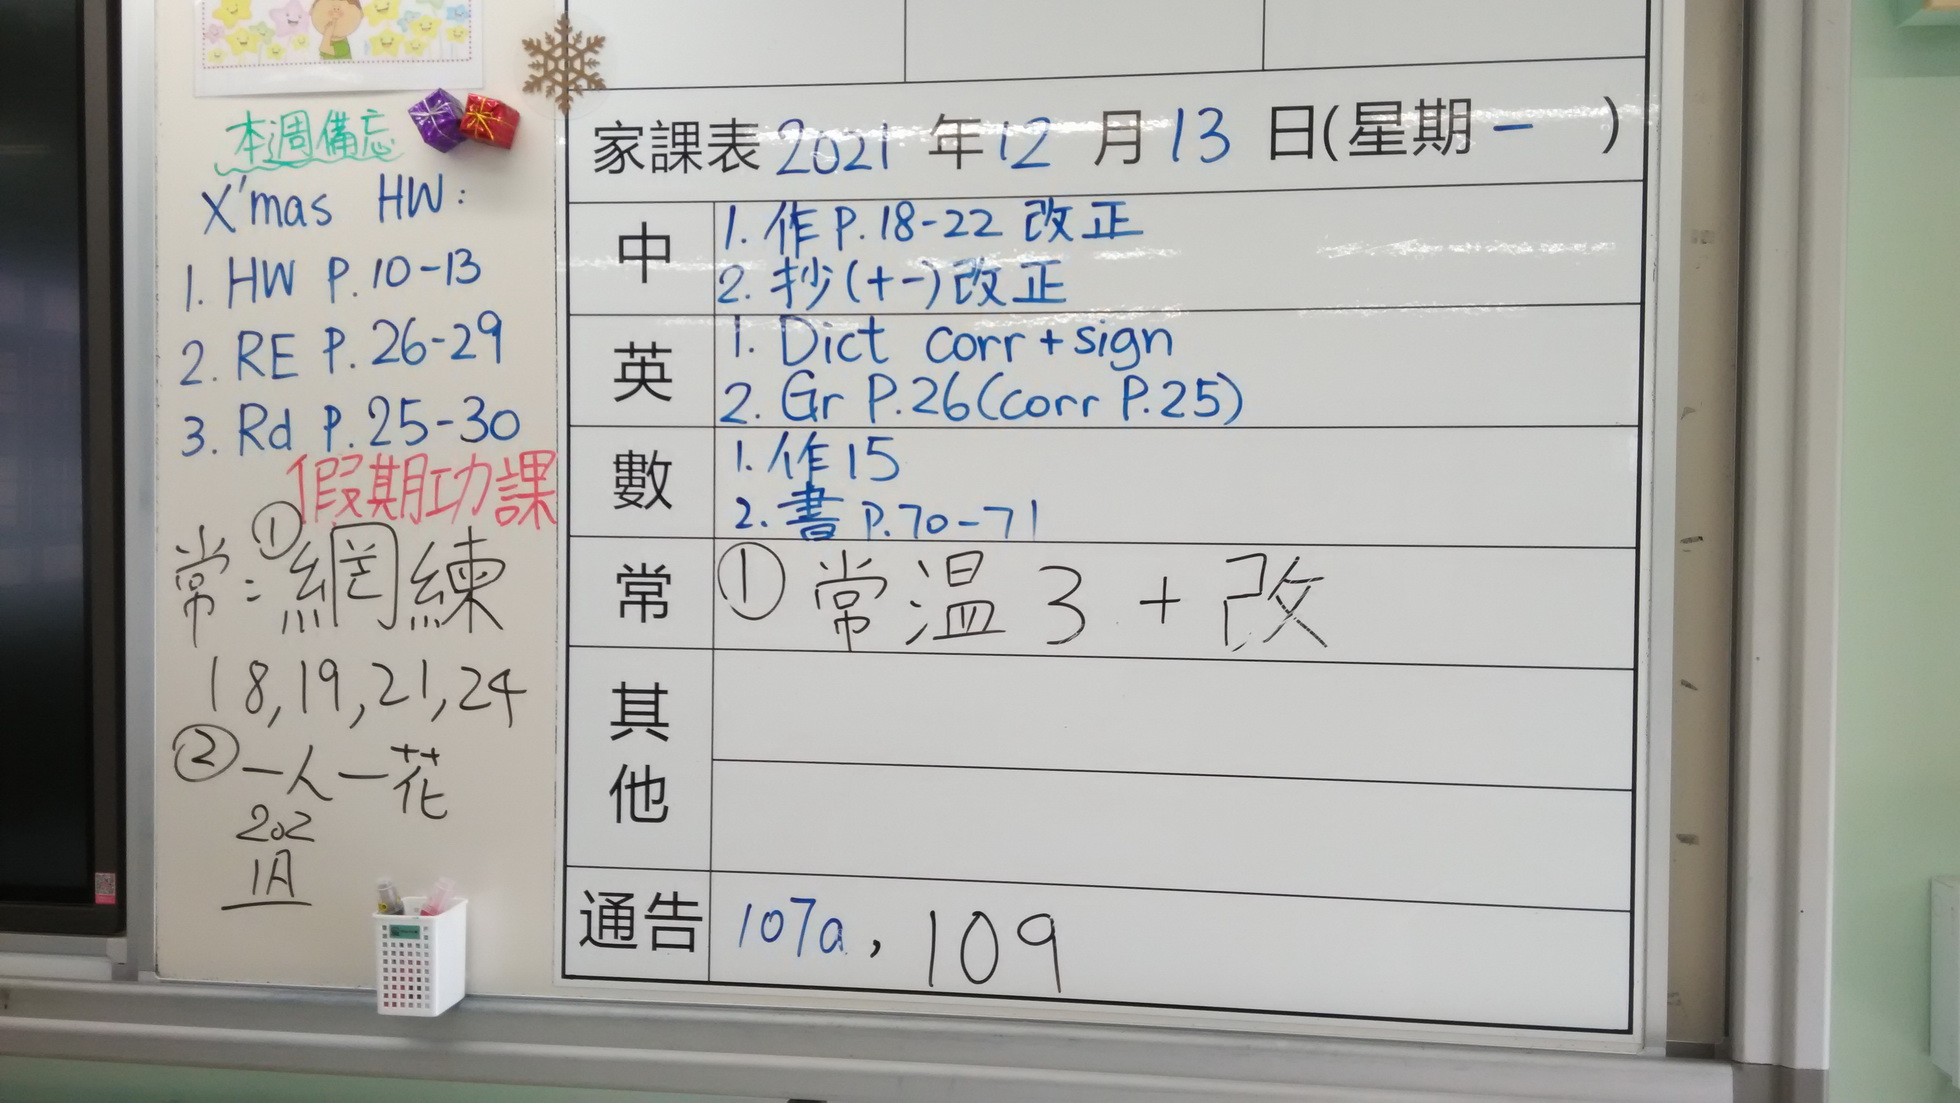 本週備忘
X'mas HW:
1. HW P.10-13
2. RE P.26-29
3. Rd P.25-30
假期功課
常:①網練
18,19,21,24
②一人一花
202
1月
家課表 2021 年 12 月 13 日(星期一 )
中
1. 作 P.18-22 改正
2. 抄(十一)改正
英
1. Dict corr+sign
2. Gr P.26(corr P.25)
數
1. 作15
2. 書 P.70-71
常
① 常溫 3 + 改
其他
通告
107a, 109